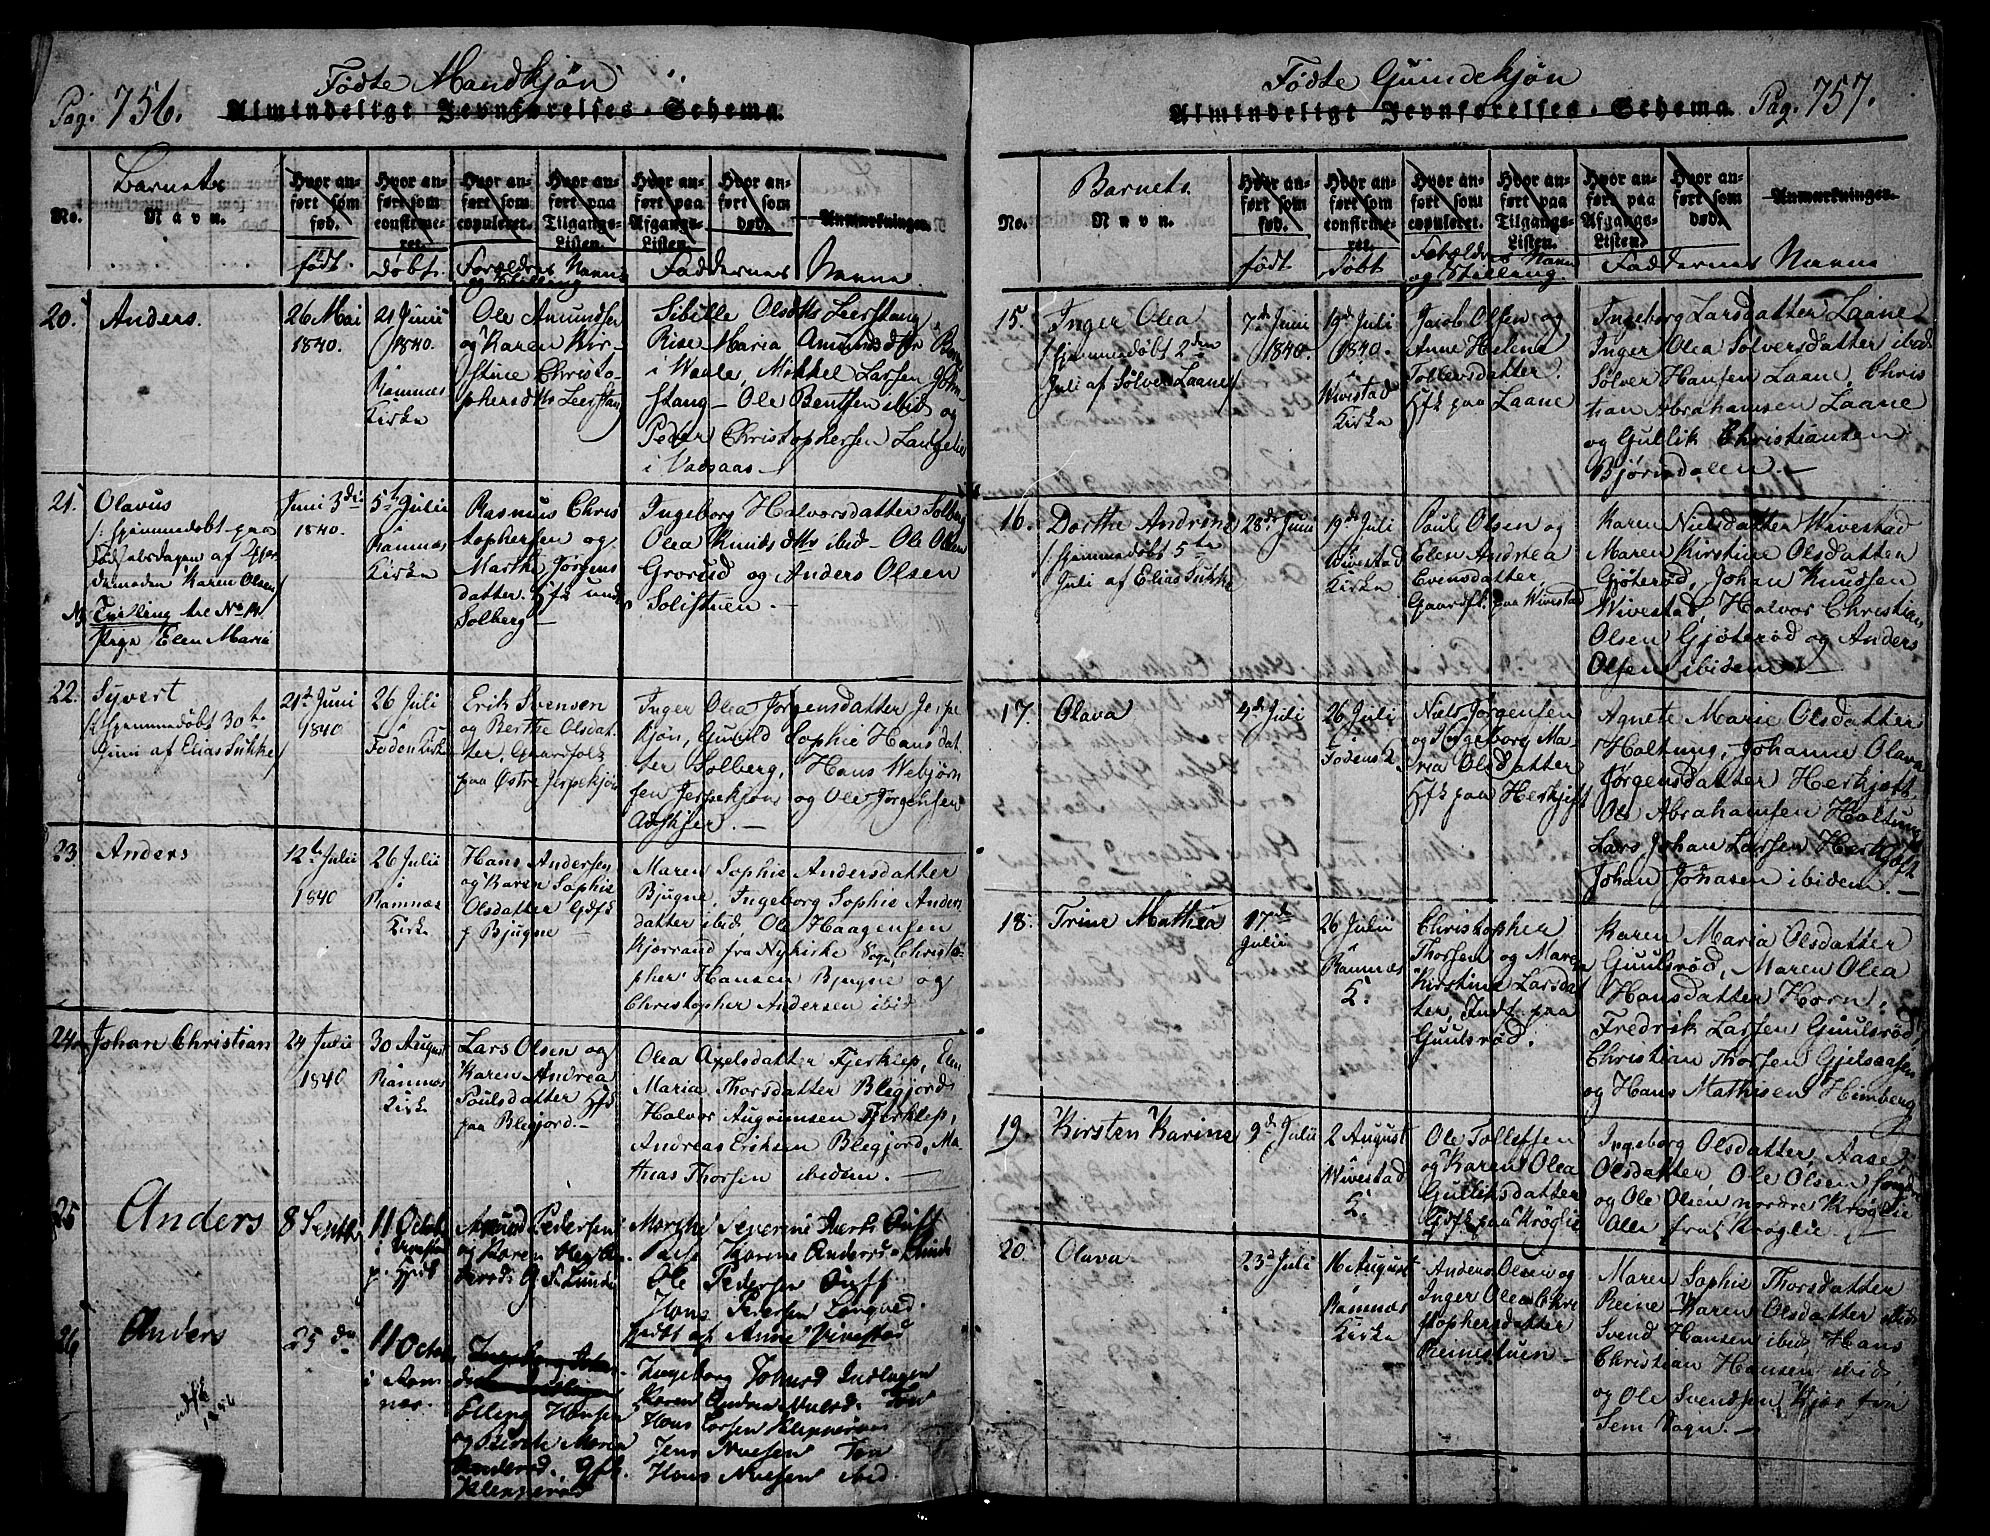 Fødte Mandkjøn
Pag. 756.
Almindeligt Jevnførelses-Schema.
No.
Barnets
Navn.
Hvor anført som fød.
Hvor anført som confirmeret.
Hvor anført som copuleret.
Hvor anført paa Tilgangs-Listen.
Hvor anført paa Afgangs-Listen.
Hvor anført som død.
Anmærkninger.
født.
døbt.
Forældres Navne
og Stilling
Faddernes Navne
20.
Anders.
26 Mai
1840.
21 Junii
1840.
i
Ramnæs
Kirke
Ole Amundsen
og Karen Kir-
stine Christo-
phersdtr Leerstang
Sibille Olsdtr Leerstang
Rise Maria Amundsdtr
i Waale, Mikkel Larsen
stang – Ole Bentsen ibid og
Peder Christophersen
i Vadsaas –
21.
Olavus
/: hjemmedøbt paa
Fødselsdagen af Gjor-
demoden Karen Olsen/
NB Tvilling til No 14
Pige Elen Maria
Juni 3die
1840.
5te Julii
i
Ramnæs
Kirke
Rasmus Chris
tophersen og
Marthe Jørgens
datter. Hfk under
Solberg
Ingeborg Halvorsdatter Solberg
Olea Knudsdtr ibid – Ole Olsen
Grorud og Anders Olsen
Solistuen. –
22.
Syvert
/: hjemmedøbt 30te
Juni af Elias Sükke/
21de Juni
1840
26 Juli
i
Foden Kirke
Erik Svensen
og Berthe Olsdat-
ter, Gaardfolk
paa Østre Jerpekjøn
Inger Olea Jørgensdatter Jerpe
kjøn, Gunild Sophie Hansdat
ter Solberg, Hans Webjørn
sen Jerpekjøns og Ole Jørgensen
Adskjer. –
23
Anders
12te Julii
1840
26 Julii
i
Ramnæs
Kirke
Hans Andersen
og Karen Sophie
Olsdatter Gdfk
p Bjugne
Maren Sophie Andersdatter
Bjugne, Ingeborg Sophie Anders
datter ibid, Ole Haagensen
Kjærrand fra Nykirke Sogn, Christo-
pher Hansen Bjugne og
Christopher Andersen ibid
24
Johan Christian
24 Julii
1840
30 August
i
Ramnæs
Kirke
Lars Olsen og
Karen Andrea
Poulsdatter Hfk
paa Blegjord. –
Olea Axelsdatter Fjerklep, Elen
Maria Thorsdatter Blegjord
Halvor Augrimsen Fjerklep,
Andreas Eriksen Blegjord, Ma-
thias Thorsen ibidem. –
25
Anders
8 Septbr
11 October
i
Amund Pedersen
og Karen
G. F. Lunde
Marthe Severine
Karine Andersd. Lunde
Ole Pedersen
Hans Pedersen
døbt af Anne Vivestad
26
Anders
25 do
11 Octor
i Ram
næs.
Elling Hansen
og Berthe Maria
Andersd. Gfk.
Klepperøs
Ingeborg
Karen
Hans Larsen Klepperøs
Jens Nielsen
Hans Nielsen ibid.
Fødte Qvindekjøn
Almindeligt Jevnførelses-Schema.
Pag. 757.
No.
Barnets
Navn.
Hvor anført som fød.
Hvor anført som confirmeret.
Hvor anført som copuleret.
Hvor anført paa Tilgangs-Listen.
Hvor anført paa Afgangs-Listen.
Hvor anført som død.
Anmærkninger.
født
døbt
Forældres Navne
og Stilling
Faddernes Navne
15.
Inger Olea
/: hjemmedøbt 2den
Juli af Sølver Laane/
7de Juni
1840.
19de Juli
1840.
i
Wivestad
Kirke
Jacob Olsen og
Anne Helene
Tollevsdatter.
Hfk paa Laane
Ingeborg Larsdatter Laane
Inger Olea Sølversdatter ibid
Sølver Hansen Laane, Chris
tian Abrahamsen Laane
og Gullik Christiansen
Bjørndalen. –
16.
Dorthe Andrine
/: hjemmedøbt 5te
Juli af Elias Sükke
28de Juni
19de Juli
i
Wivestad
Kirke
Poul Olsen og
Elen Andrea
Evensdatter,
Gaardfk. paa Wivestad
Karen Nielsdatter Wivestad
Maren Kirstine Olsdatter
Gjøterød, Johan Knudsen
Wivestad, Halvor Christian
Olsen Gjøterød og Anders
Olsen ibidem –
17.
Olava
4de Juli
26 Juli
i
Fodens K.
Niels Jørgensen
og Ingeborg Ma-
ria Olsdatter
Hfk paa Herkjøft
Agnete Marie Olsdatter
Holtung, Johanne Olava
Jørgensdatter Herkjøft
Ole Abrahamsen Holtung
Lars Johan Larsen Herkjøft
Johan Johasen ibidem. –
18.
Trine Mathea
17de
Julii
26 Julii
i
Ramnæs
K.
Christopher
Thorsen og Maren
Kirstine Larsdat
ter, Indt. paa
Guulsrød.
Karen Maria Olsdatter
Guulsrød, Maren Olea
Hansdatter Horn,
Fredrik Larsen Guulsrød,
Christian Thorsen Gjelsaasen
og Hans Mathisen Himberg
19
Kirsten Karine
9de Julii
2 August
i
Wivestad
K.
Ole Tollefsen
og Karen Olea
Gulliksdatter
Gdfk paa Krøglie
Ingeborg Olsdatter, Aase
Olsdatter, Ole Olsen søndre
og Ole Olsen nordre Krøglie
Alle fra Krøglie
20
Olava
23de Juli
16 August
i
Ramnæs
Kirke
Anders Olsen og
Inger Olea Chri
stophersdatter
Reinestuen –
Maren Sophie Thorsdatter
Reine – Karen Olsdatter ibid
Svend Hansen ibid, Hans
Christian Hansen ibid,
og Ole Svendsen Kjær fra
Sem Sogn. –